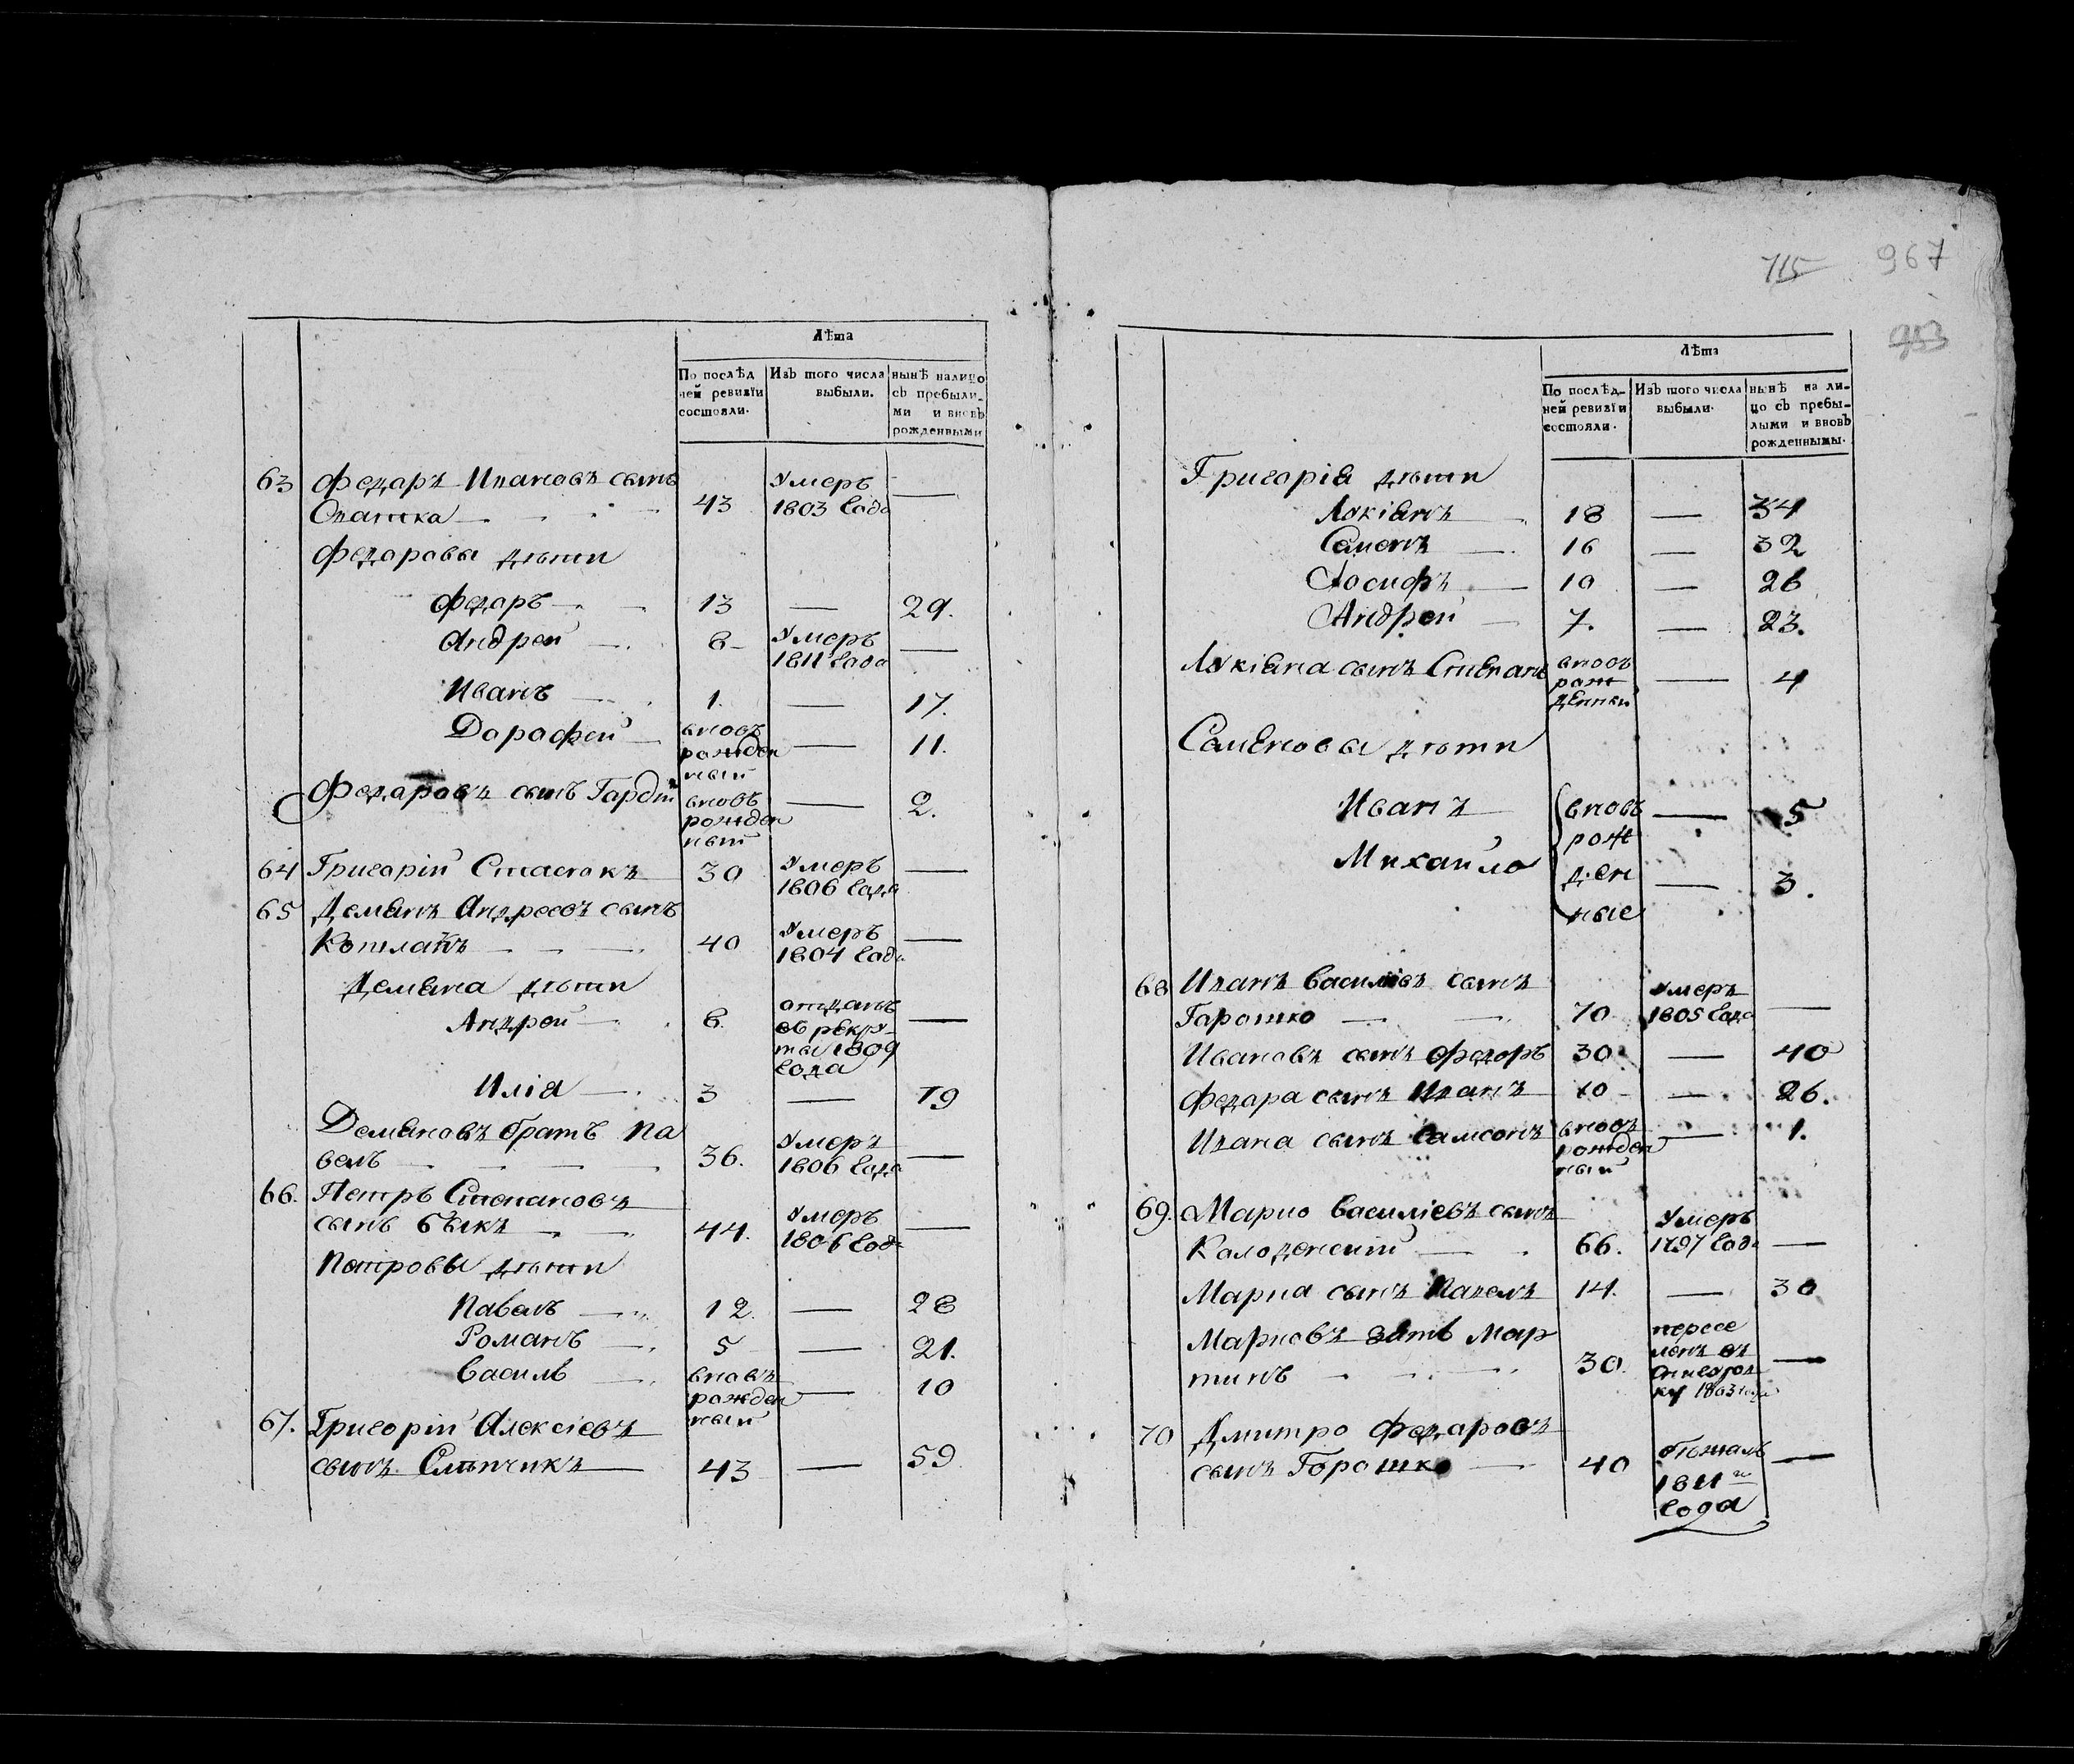 Лѣта
По послѣд
ней ревизїи
состояли.
Изъ того числа
выбыли.
нынѣ налицо
съ пребыли-
ми и вновь
рожденными
63 Федаръ Ивановъ сынъ
43 Умеръ 1803 года —
Федоровы дѣти
Федоръ 13 — 29.
Андрей 8 Умеръ 1811 года —
Иванъ 1. — 17.
Дорофей вновь рожден ный — 11.
Федаровъ сынъ вновь рожден ный — 2.
64 Григорій 30 Умеръ 1806 года —
65 Демянъ Андреевъ сынъ
40 Умеръ 1804 года —
Демяна дѣти
Андрей 8. отданъ въ рекру- ты 1809 года —
Иліа 3 — 19
Демяновъ братъ Па
велъ 36. Умеръ 1806 года —
66. Петръ Степановъ
сынъ Быкъ 44. Умеръ 1806 года —
Петровы дѣти
Павелъ 12. — 28
Романъ 5 — 21.
Василь вновь рожден ный — 10
67. Григорій Алексіевъ
сынъ 43 — 59
715 967
953
Лѣта
По послѣд-
ней ревизїи
состояли.
Изъ того числа
выбыли.
нынѣ на ли-
цо съ пребы-
лыми и вновь
рожденными.
Григорія дѣти
Лукіянъ 18 — 34
Семенъ 16 — 32
Іосифъ 10 — 26
Андрей 7. — 23.
Лукіяна сынъ Степанъ вновь рож денный — 4
Семеновы дѣти
Иванъ вновь рож — 5
Михайло ден ные — 3.
68 Иванъ Василіевъ сынъ
Гарошко 70 Умеръ 1805 года —
Ивановъ сынъ Федоръ 30 — 40
Федара сынъ Иванъ 10 — 26.
Ивана сынъ Самсонъ вновь рожден ный — 1.
69. Марко Василіевъ сынъ
66. Умеръ 1797 года —
Марка сынъ Павелъ 14. — 30
Марковъ зять Мар
тинъ 30. пересе ленъ въ 1803 года —
70 Дмитро Федаровъ
сынъ Горошко 40 бѣжалъ 1811 го года —